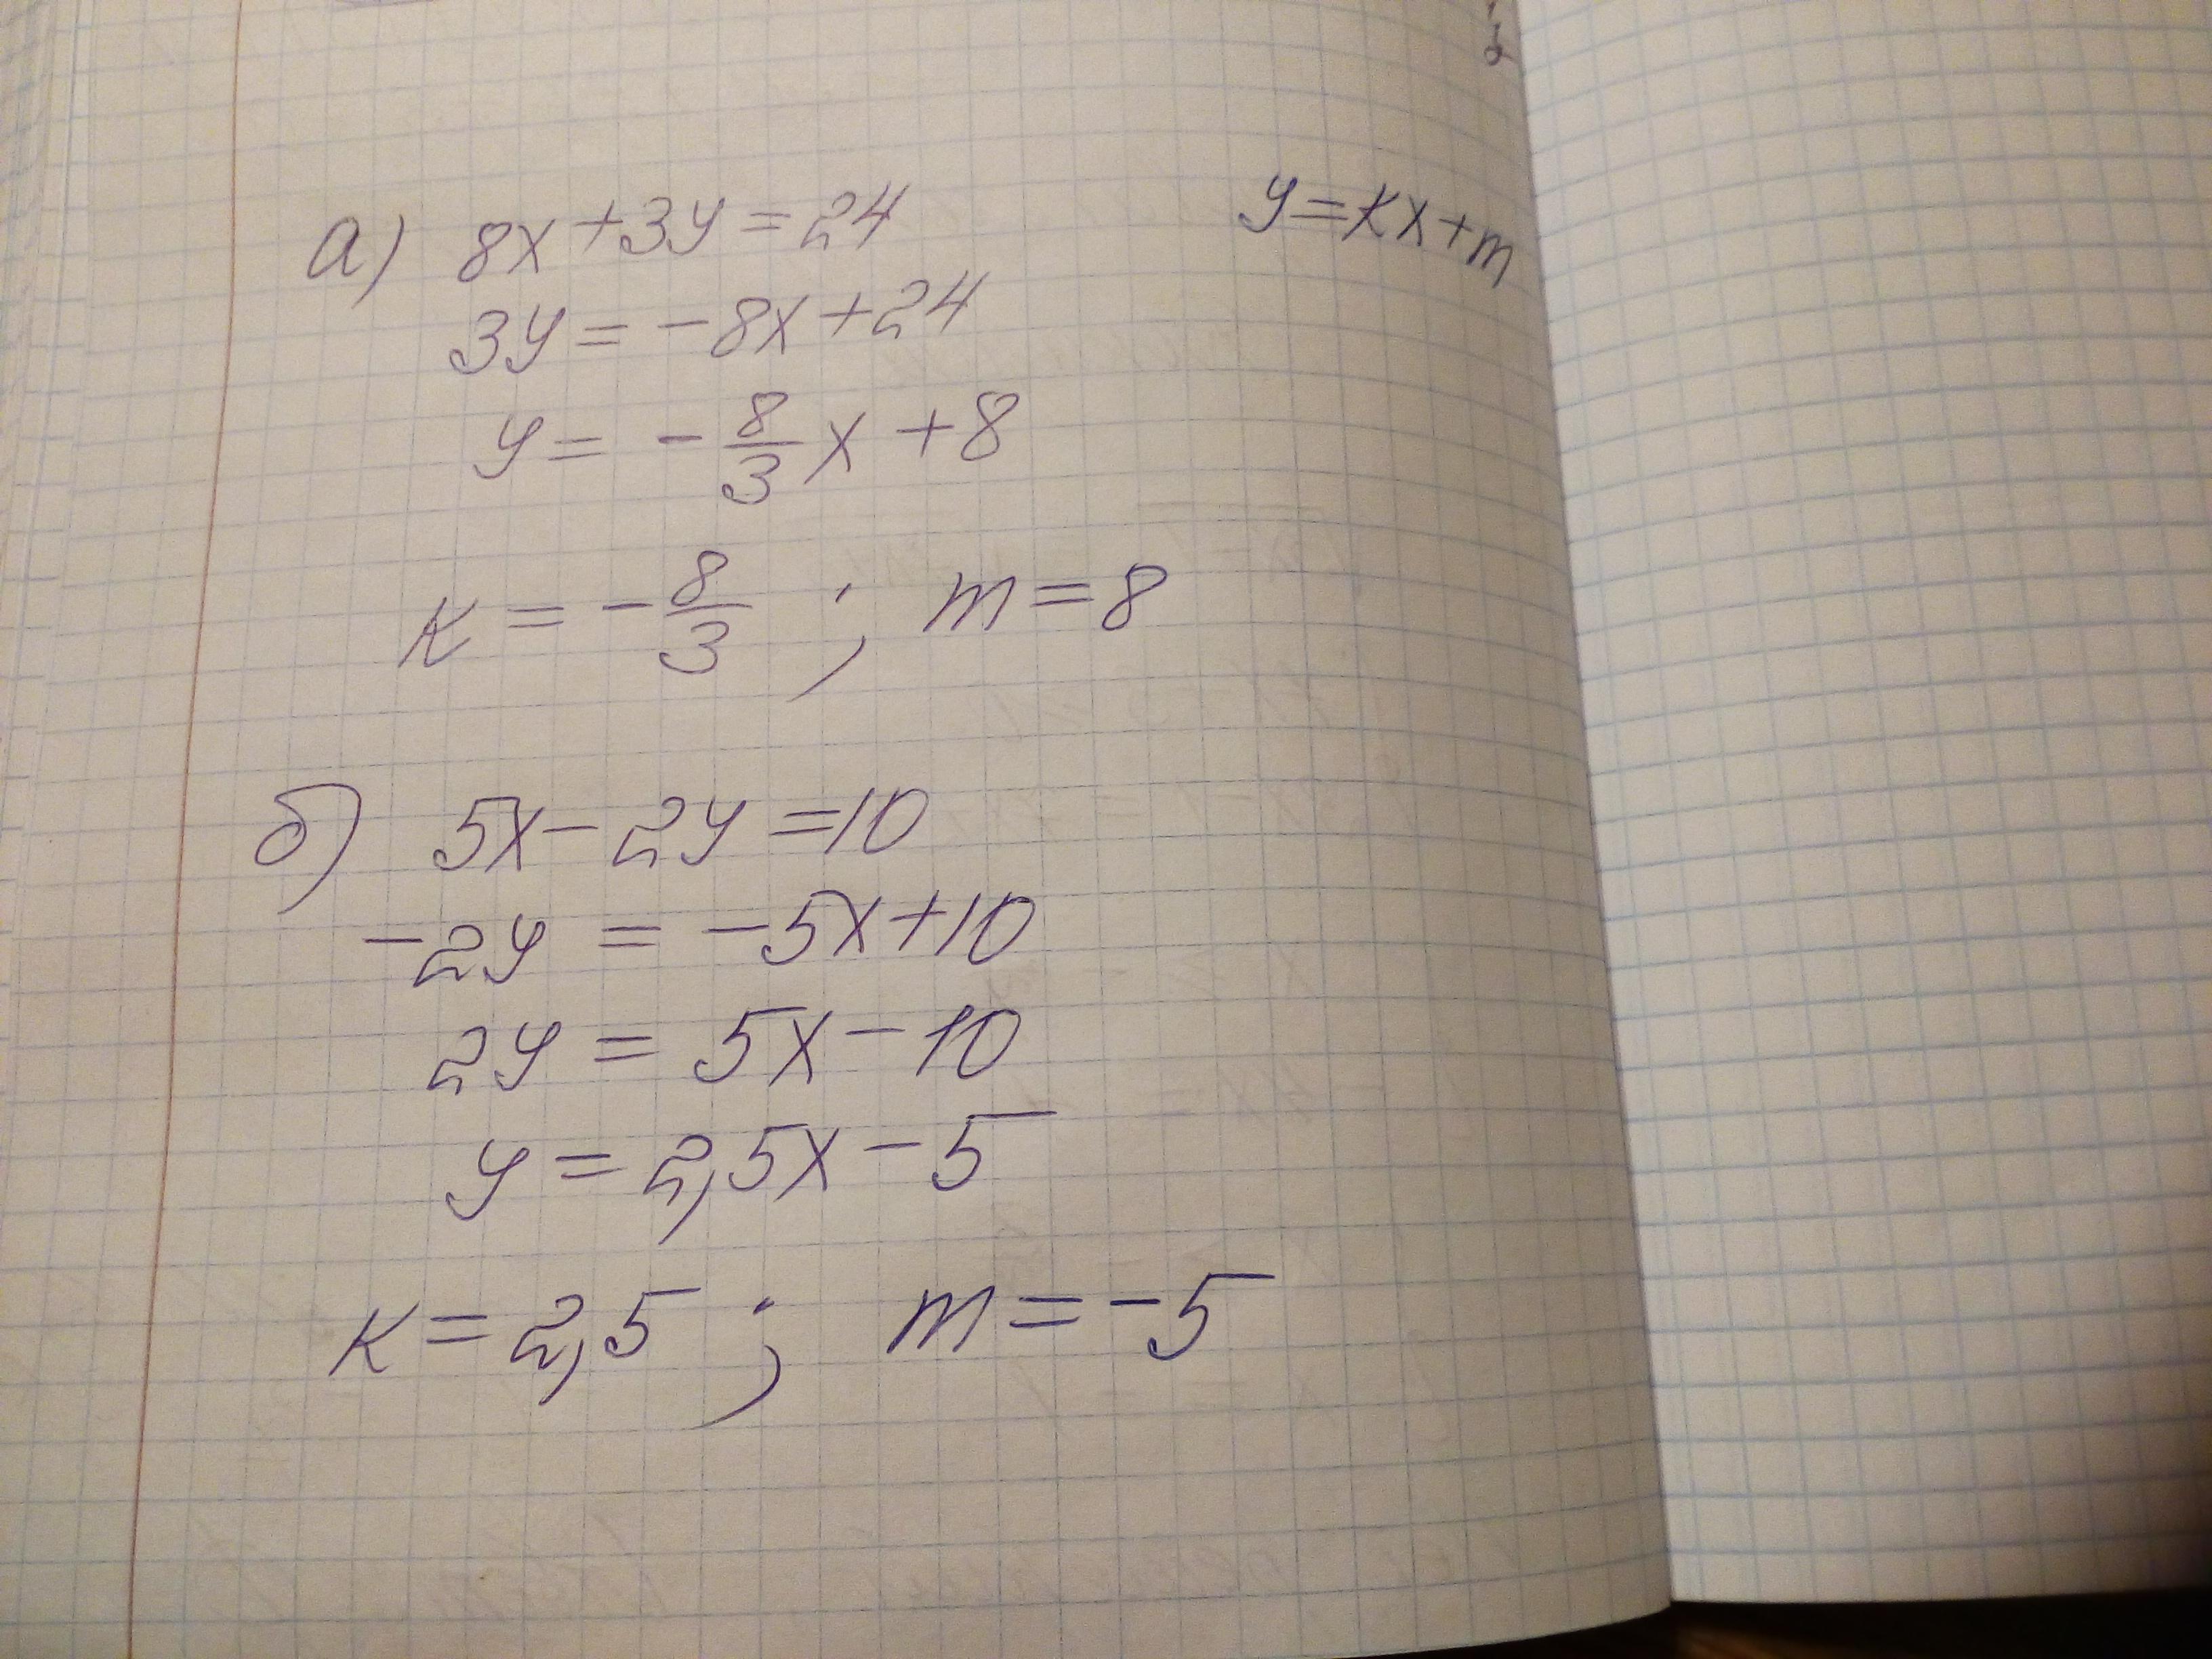 а) 8x+3y=24
y=kx+m
3y=-8x+24
y=-8/3x+8
к=-8/3; m=8
б) 5x-2y=10
-2y=-5x+10
2y=5x-10
y=2,5x-5
к=2,5; m=-5